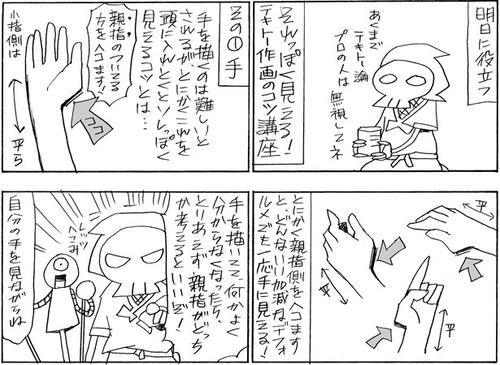 明日に役立つ
それっぽく見える!
テキトー作画のコツ講座
あくまで
テキトー論
プロの人は
無視してネ
その①手
手を描くのは難しいと
されるがとにかくこれを
頭に入れとくとソレっぽく
見えるコツとは…
親指のついてる
方をヘコます!
ココ
小指側は
平ら
とにかく親指側をヘコます
と、どんないい加減なデフォ
ルメでも一応手に見える!
平
平
平
手を描いてて、何かよく
分からなくなったら、
とりあえず親指がどっち
か考えるといいぞ!
レッツ
ヘコみ
自分の手を見ながらね